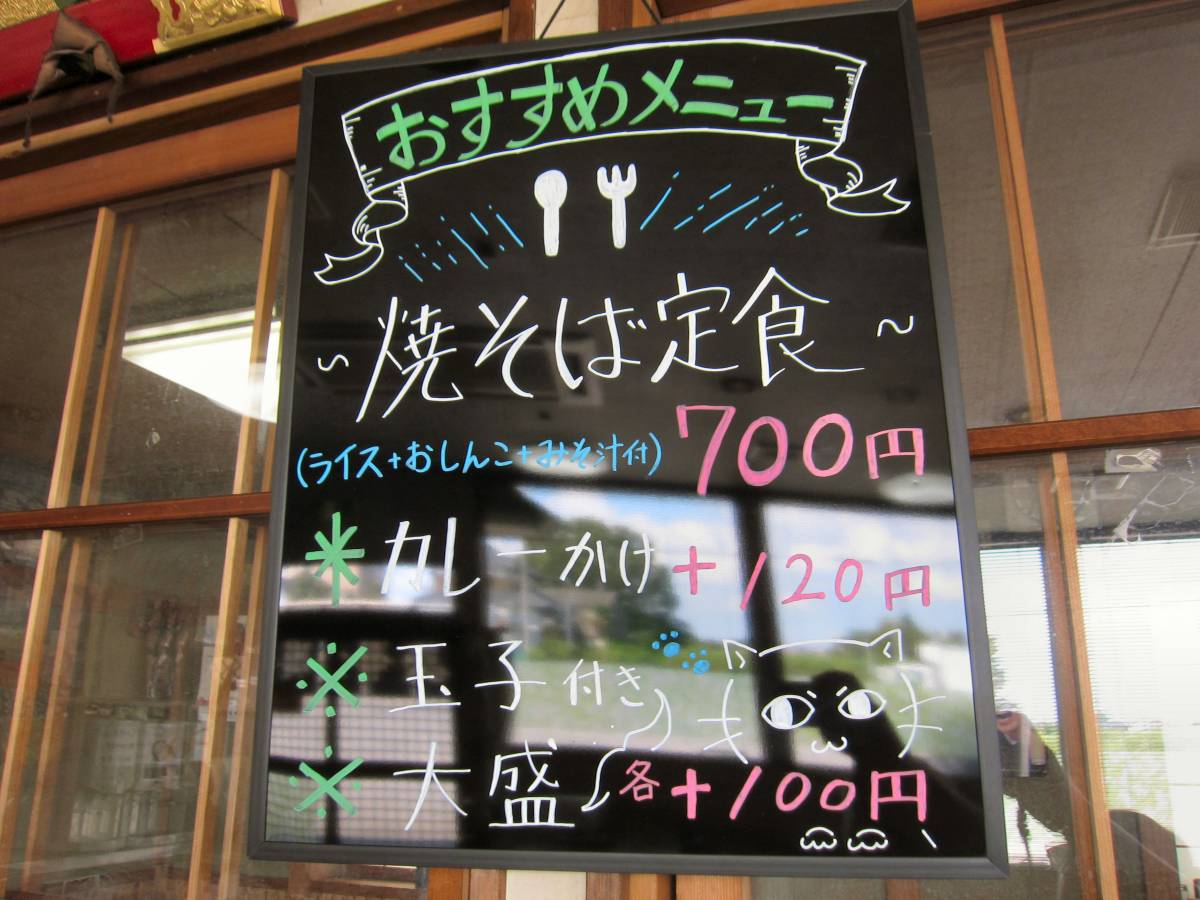 おすすめメニュー
~焼そば定食~
(ライス+おしんこ+みそ汁付) 700円
カレーかけ +120円
※ 玉子付き
※ 大盛 各+100円